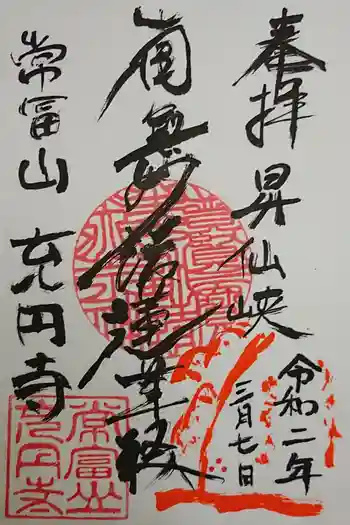 奉拝 昇仙峡
令和二年
三月七日
南無妙法蓮華経
常冨山 充円寺
常冨山
充円寺